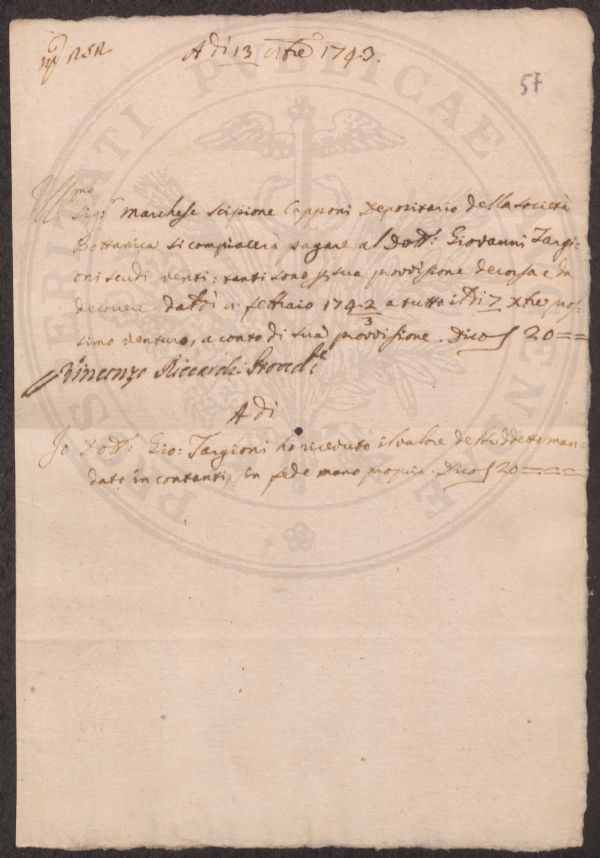 A dì 13 8bre 1743.
57
Ill.mo
Sig.r Marchese Scipione Capponi Depositario della Società
Bottanica si compiacerà pagare al Dott: Giovanni Targi-
oni scudi venti: tanti sono p sua provvisione decorsa e da
decorrere dal dì febbraio 1742/3 a tutto il dì 7 Xbre pros-
simo venturo, a conto di sua provvisione. Dico ∫ 20 ==
Vincenzo Riccardi Proved.e
A dì
Io Dott: Gio: Targioni ho ricevuto il valore del suddetto man-
dato in contanti, in fede mano propria. Dico ∫ 20 ====
PUBLICAE